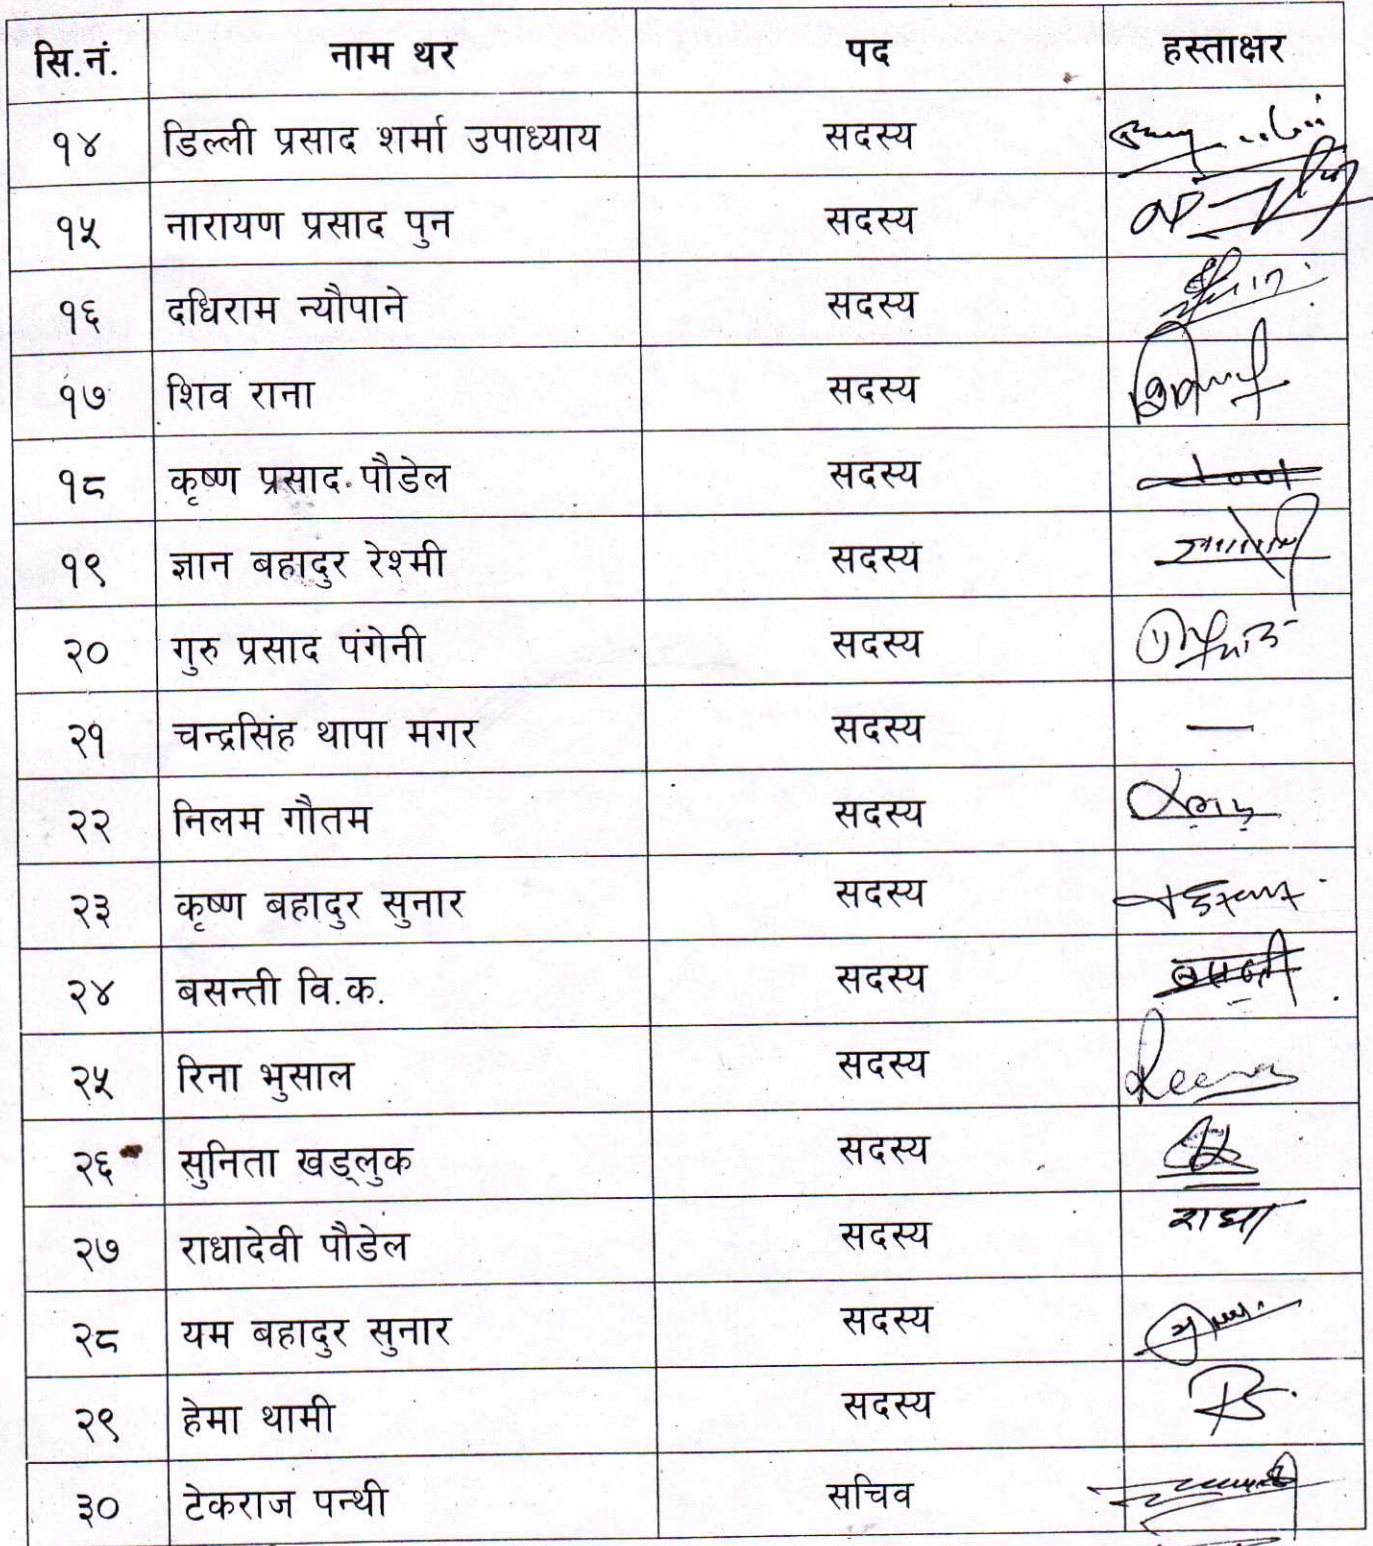 सि.नं. नाम थर पद हस्ताक्षर
१४ डिल्ली प्रसाद शर्मा उपाध्याय सदस्य
१५ नारायण प्रसाद पुन सदस्य
१६ दधिराम न्यौपाने सदस्य
१७ शिव राना सदस्य
१८ कृष्ण प्रसाद पौडेल सदस्य
१९ ज्ञान बहादुर रेश्मी सदस्य
२० गुरु प्रसाद पंगेनी सदस्य
२१ चन्द्रसिंह थापा मगर सदस्य —
२२ निलम गौतम सदस्य
२३ कृष्ण बहादुर सुनार सदस्य
२४ बसन्ती वि.क. सदस्य
२५ रिना भुसाल सदस्य
२६ सुनिता खड्लुक सदस्य
२७ राधादेवी पौडेल सदस्य राधा
२८ यम बहादुर सुनार सदस्य
२९ हेमा थामी सदस्य
३० टेकराज पन्थी सचिव